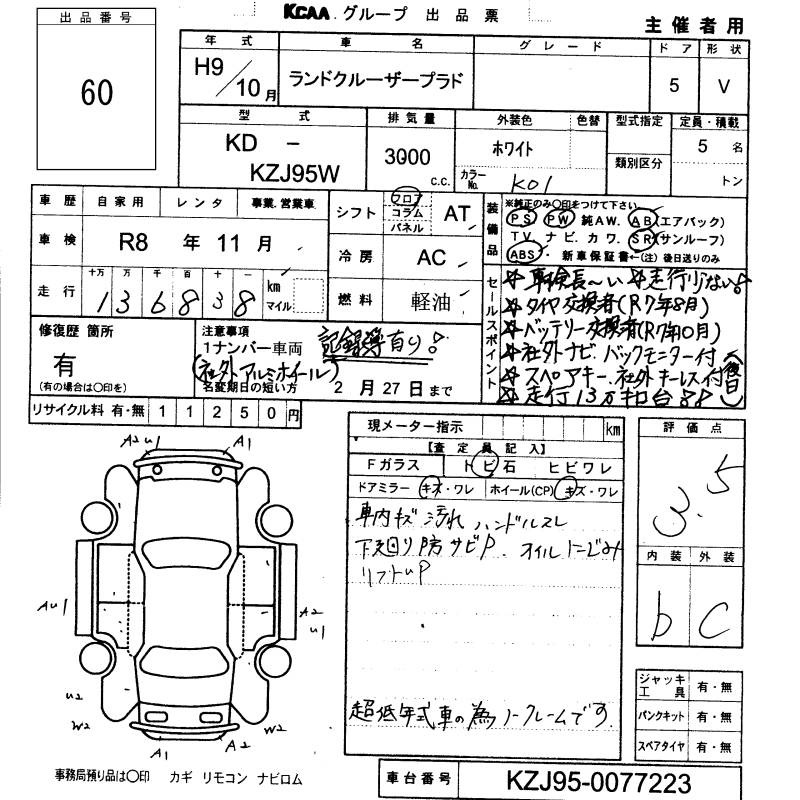 KCAA グループ 出品票
主催者用
出品番号
60
年式 車名 グレード ドア 形状
H9/10月 ランドクルーザープラド 5 V
型式 排気量 外装色 色替 型式指定 定員・積載
KD - 3000 c.c. ホワイト 類別区分 5名
KZJ95W カラーNo. K01 トン
車歴 自家用 レンタ 事業.営業車
車検 R8年11月
走行 十万 万 千 百 十 一 km マイル
1 3 6 8 3 8
シフト フロア コラム パネル AT
冷房 AC
燃料 軽油
装備品
※純正のみ○印をつけて下さい
PS PW 純AW. AB(エアバック)
TV ナビ.カワ.SR(サンルーフ)
ABS. 新車保証書←(注) 後日送りのみ
セールスポイント
☆車検長~い ☆走行少ない!
☆タイヤ交換者(R7年8月)
☆バッテリー交換者(R7年10月)
☆社外ナビ.バックモニター付
☆スペアキー.社外キーレス付(後日)
☆走行13万キロ台!!
修復歴 箇所
有
(有の場合は○印を)
注意事項
1ナンバー車両
記録簿有り!
(社外アルミホイール)
名変期日の短い方 2月27日まで
リサイクル料 有・無 11250円
現メーター指示 km
【査定員記入】
Fガラス トビ石 ヒビワレ
ドアミラー キズ・ワレ ホイール(CP) キズ・ワレ
車内キズ 汚れ ハンドルスレ
下廻り防サビP. オイルにじみ
リフトup
超低年式車の為ノークレームです
評価点
3.5
内装 外装
b C
ジャッキ工具 有・無
パンクキット 有・無
スペアタイヤ 有・無
A2U1 A1
AU1 A2
U1
U2
W2 W2
A1 A2
事務局預り品は○印 カギ リモコン ナビロム
車台番号 KZJ95-0077223